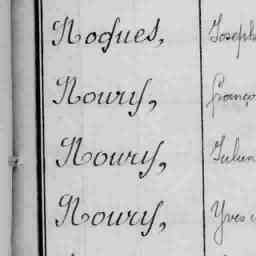 Nogues, Joseph
Noury, Franço
Noury, Julien
Noury, Yves